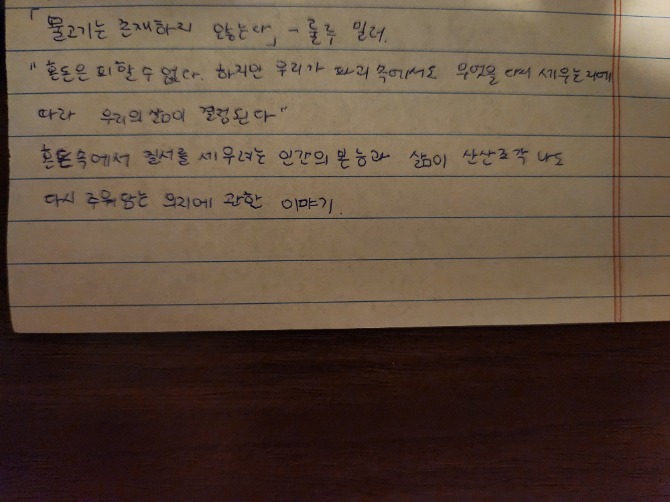 「물고기는 존재하지 않는다」 - 룰루 밀러.
"혼돈은 피할 수 없다. 하지만 우리가 파괴 속에서도 무엇을 다시 세우는지에
따라 우리의 삶이 결정된다"
혼돈속에서 질서를 세우려는 인간의 본능과 삶이 산산조각 나도
다시 주워담는 의지에 관한 이야기.